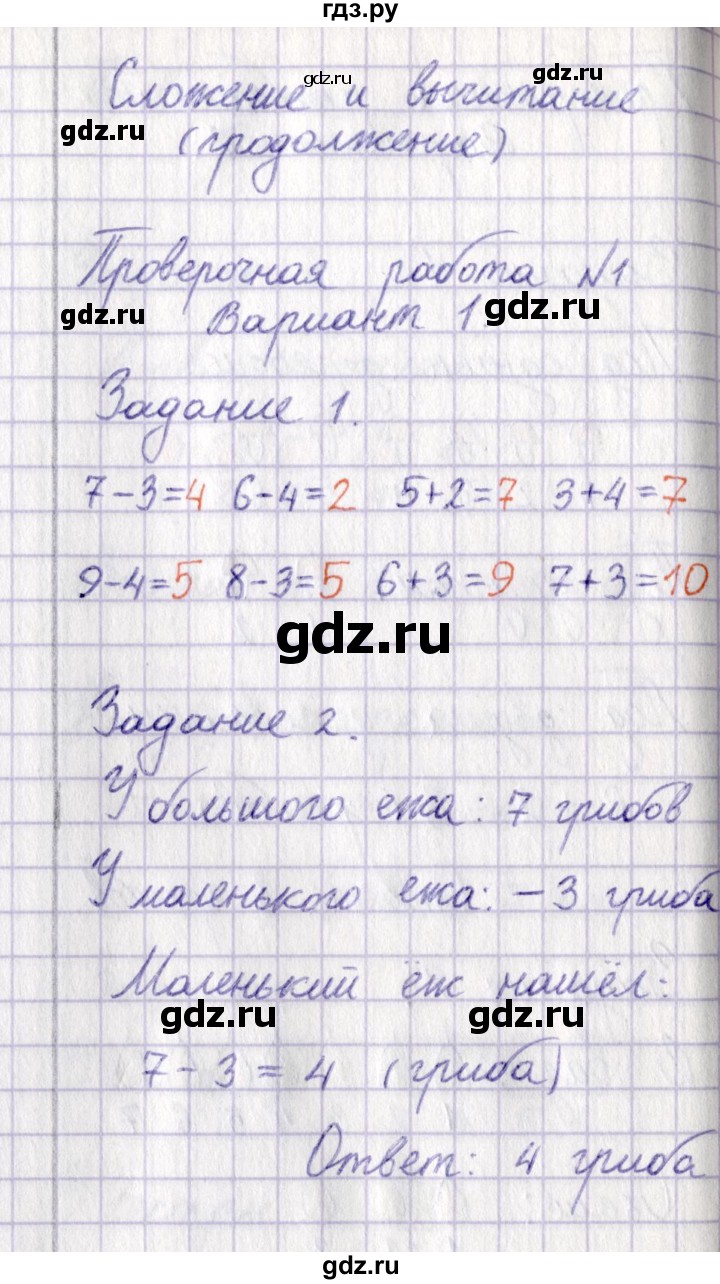 гдз.ру
gdz.ru
gdz.ru
Сложение и вычитание
gdz.ru
(продолжение)
Проверочная работа №1
gdz.ru
gdz.ru
Вариант 1.
Задание 1.
7-3=4 6-4=2 5+2=7 3+4=7
9-4=5 8-3=5 6+3=9 7+3=10
gdz.ru
Задание 2.
У большого ежа: 7 грибов
У маленького ежа: -3 гриба
Маленький ёж нашёл:
gdz.ru
gdz.ru
7-3=4 (гриба)
Ответ: 4 гриба
gdz.ru